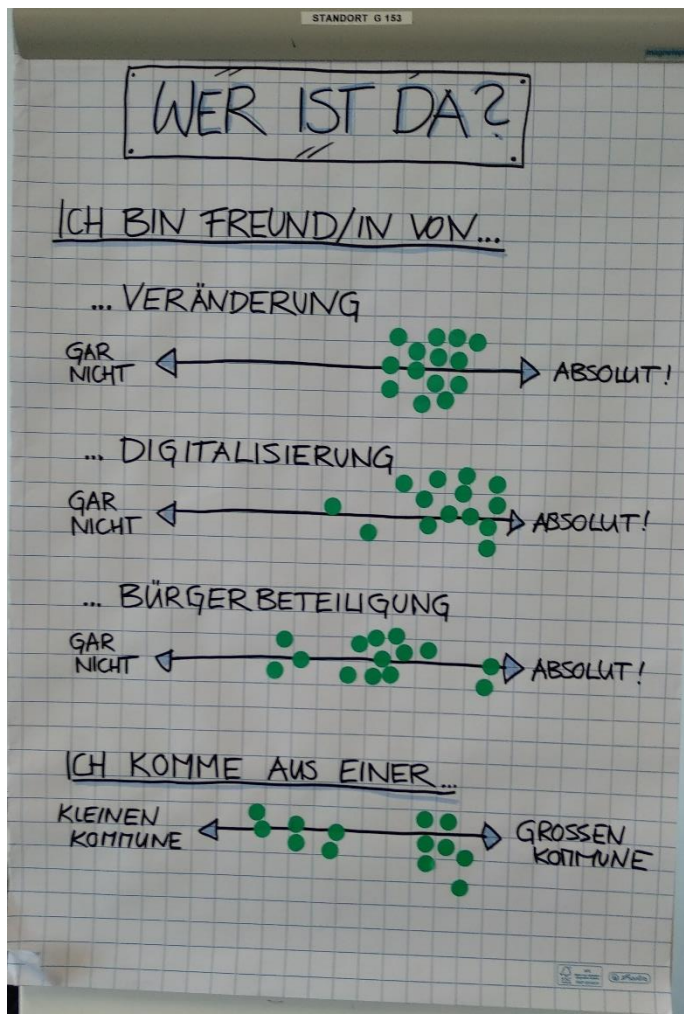 STANDORT G 153
WER IST DA?
ICH BIN FREUND/IN VON...
... VERÄNDERUNG
GAR
NICHT
ABSOLUT!
... DIGITALISIERUNG
GAR
NICHT
ABSOLUT!
... BÜRGERBETEILIGUNG
GAR
NICHT
ABSOLUT!
ICH KOMME AUS EINER...
KLEINEN
KOMMUNE
GROSSEN
KOMMUNE